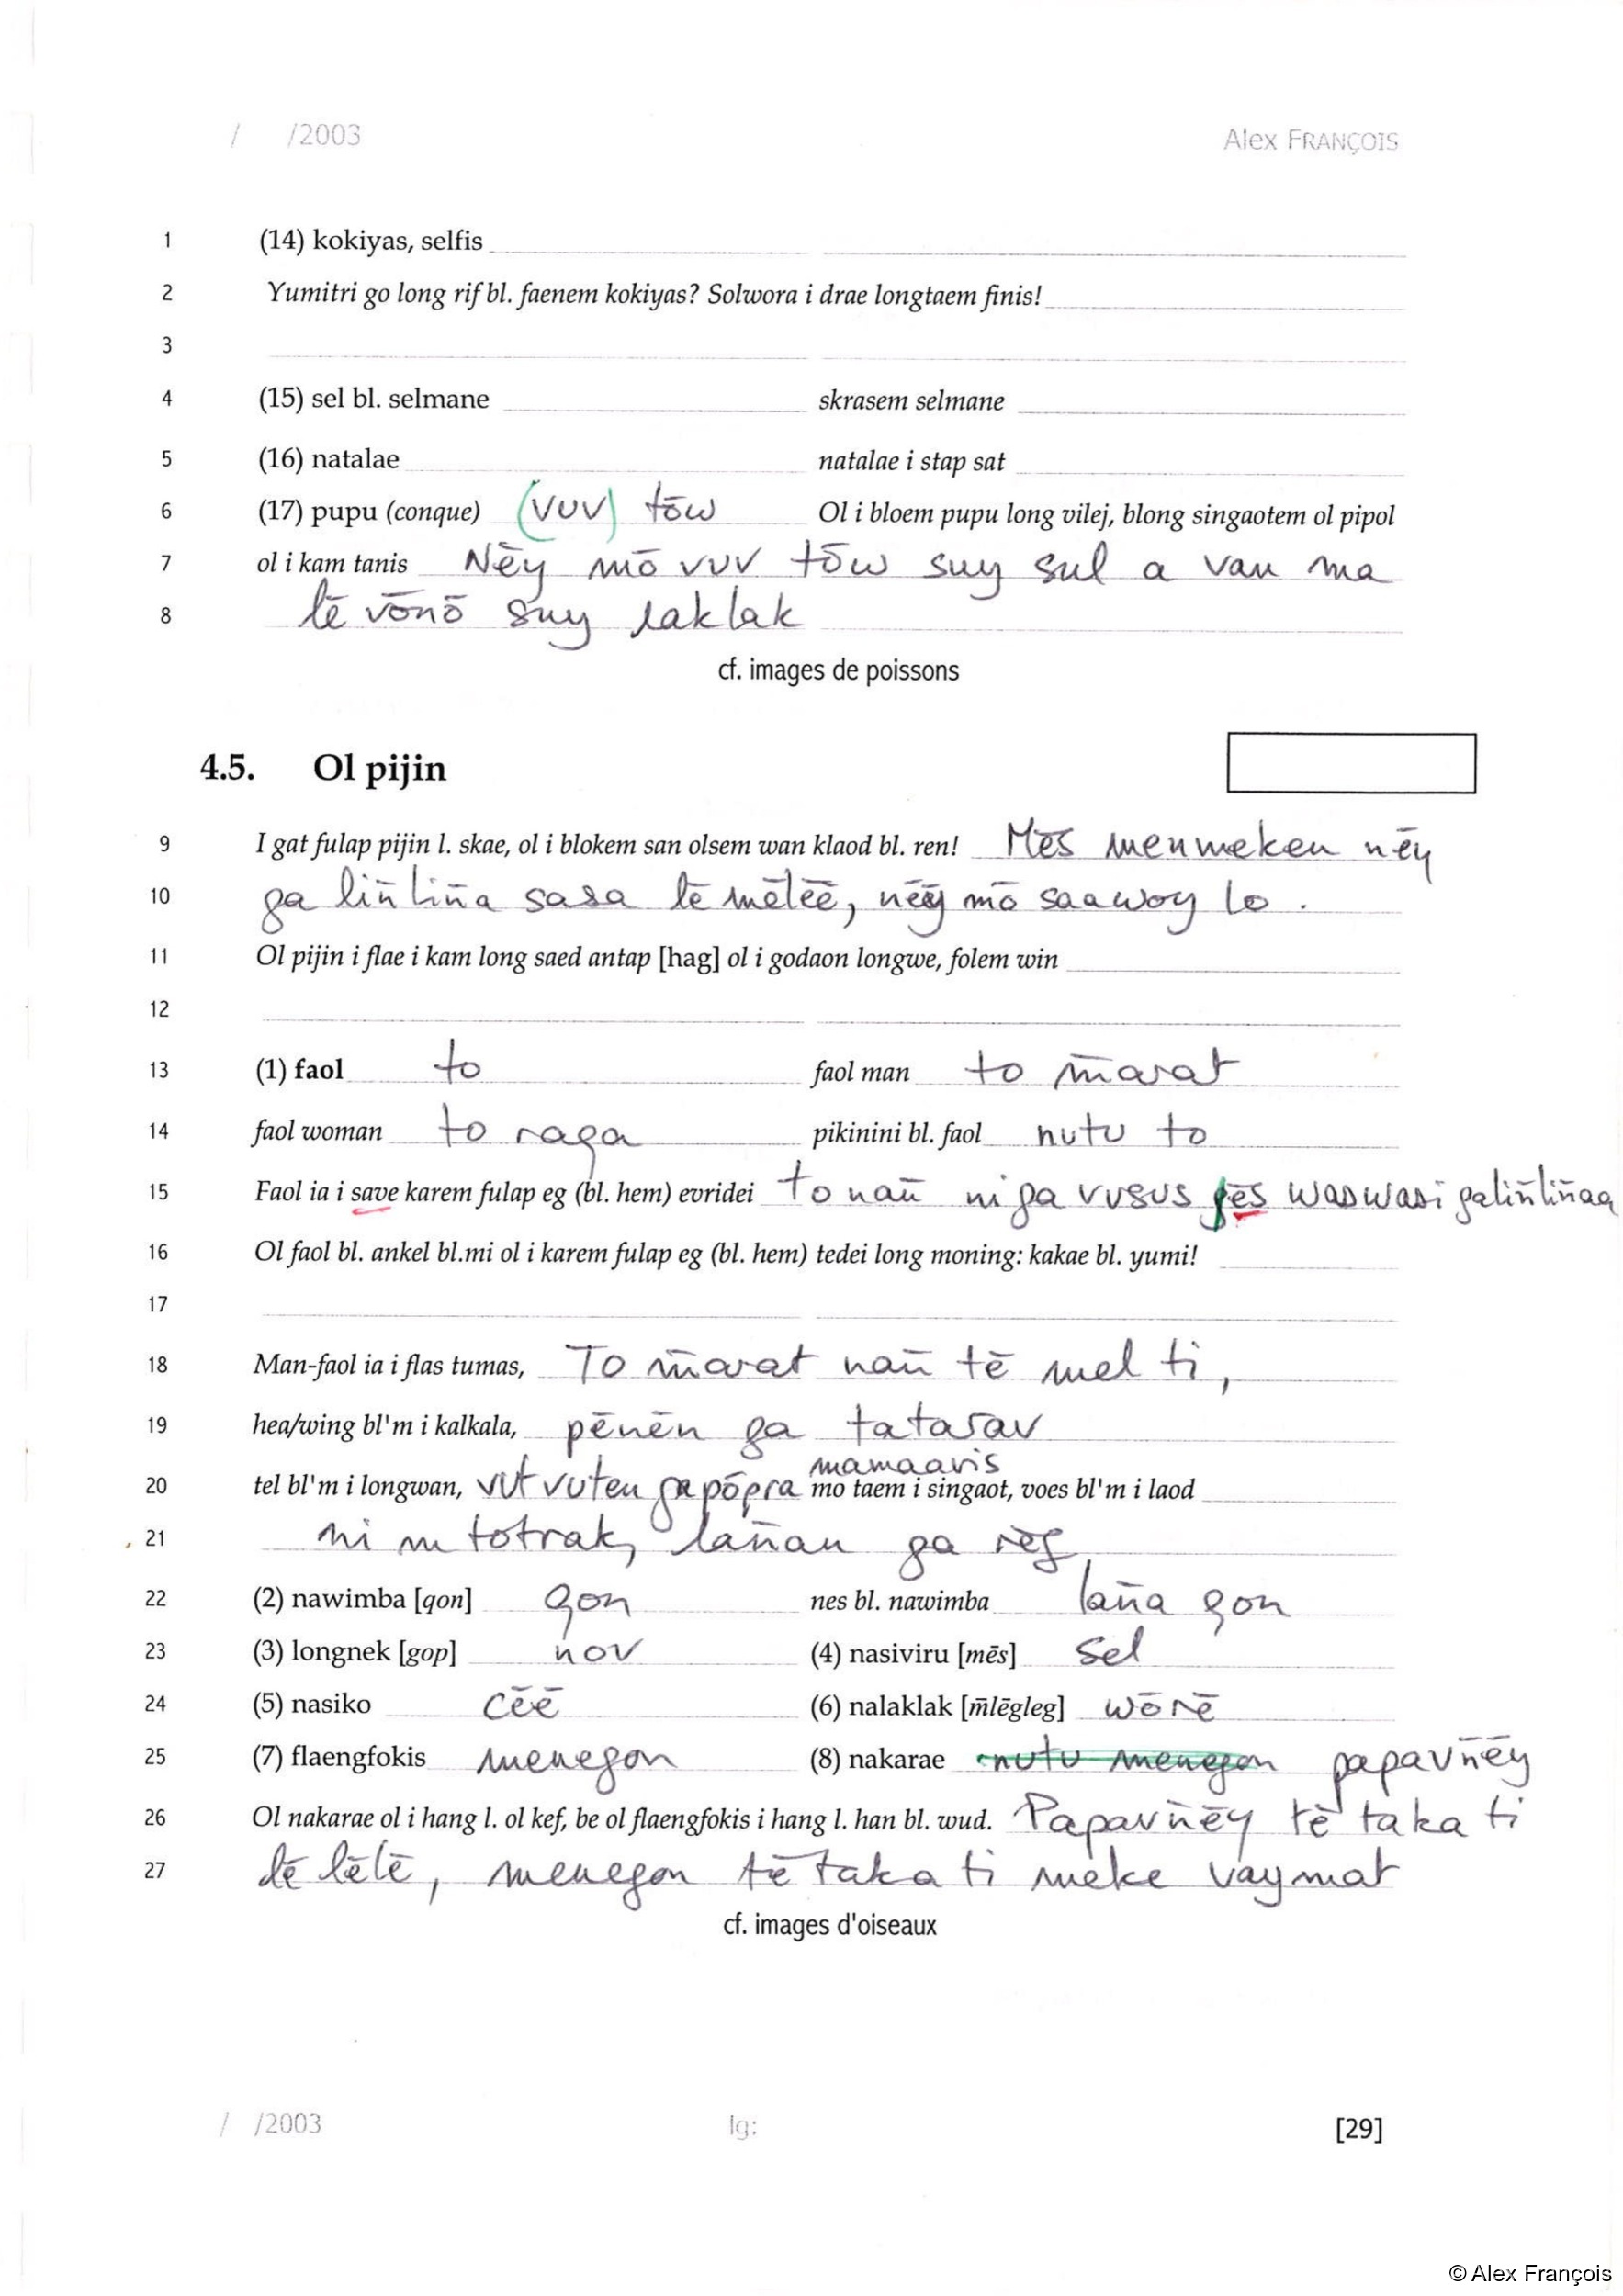 / /2003 Alex FRANÇOIS
1 (14) kokiyas, selfis
2 Yumitri go long rif bl. faenem kokiyas? Solwora i drae longtaem finis!
3
4 (15) sel bl. selmane skrasem selmane
5 (16) natalae natalae i stap sat
6 (17) pupu (conque) (vuv) tōw Ol i bloem pupu long vilej, blong singaotem ol pipol
7 ol i kam tanis Nēy mō vuv tōw suy sul a van ma
8 lē vōnō suy laklak
cf. images de poissons
4.5. Ol pijin
9 I gat fulap pijin l. skae, ol i blokem san olsem wan klaod bl. ren! Mēs menmeken nēy
10 ga lin̄lin̄a sasa lē mēlēē, nēy mō saawoy lo.
11 Ol pijin i flae i kam long saed antap [hag] ol i godaon longwe, folem win
12
13 (1) faol to faol man to m̄arat
14 faol woman to raga pikinini bl. faol nutu to
15 Faol ia i save karem fulap eg (bl. hem) evridei to nan̄ ni ga vusus gēs waswasi galin̄lin̄aa
16 Ol faol bl. ankel bl.mi ol i karem fulap eg (bl. hem) tedei long moning: kakae bl. yumi!
17
18 Man-faol ia i flas tumas, To m̄arat nan̄ tē mel ti,
19 hea/wing bl'm i kalkala, pēnēn ga tatarav
20 tel bl'm i longwan, vutvuten gapōpra mamaavis mo taem i singaot, voes bl'm i laod
21 ni m totrak, lan̄an ga rēg
22 (2) nawimba [qon] qon nes bl. nawimba lan̄a qon
23 (3) longnek [gop] nov (4) nasiviru [mēs] sel
24 (5) nasiko cēē (6) nalaklak [m̄lēgleg] wōrē
25 (7) flaengfokis menegon (8) nakarae nutu menegon papavn̄ēy
26 Ol nakarae ol i hang l. ol kef, be ol flaengfokis i hang l. han bl. wud. Papavn̄ēy tē taka ti
27 lē lēlē, menegon tē taka ti meke vaymat
cf. images d'oiseaux
/ /2003 lg: [29]
© Alex François